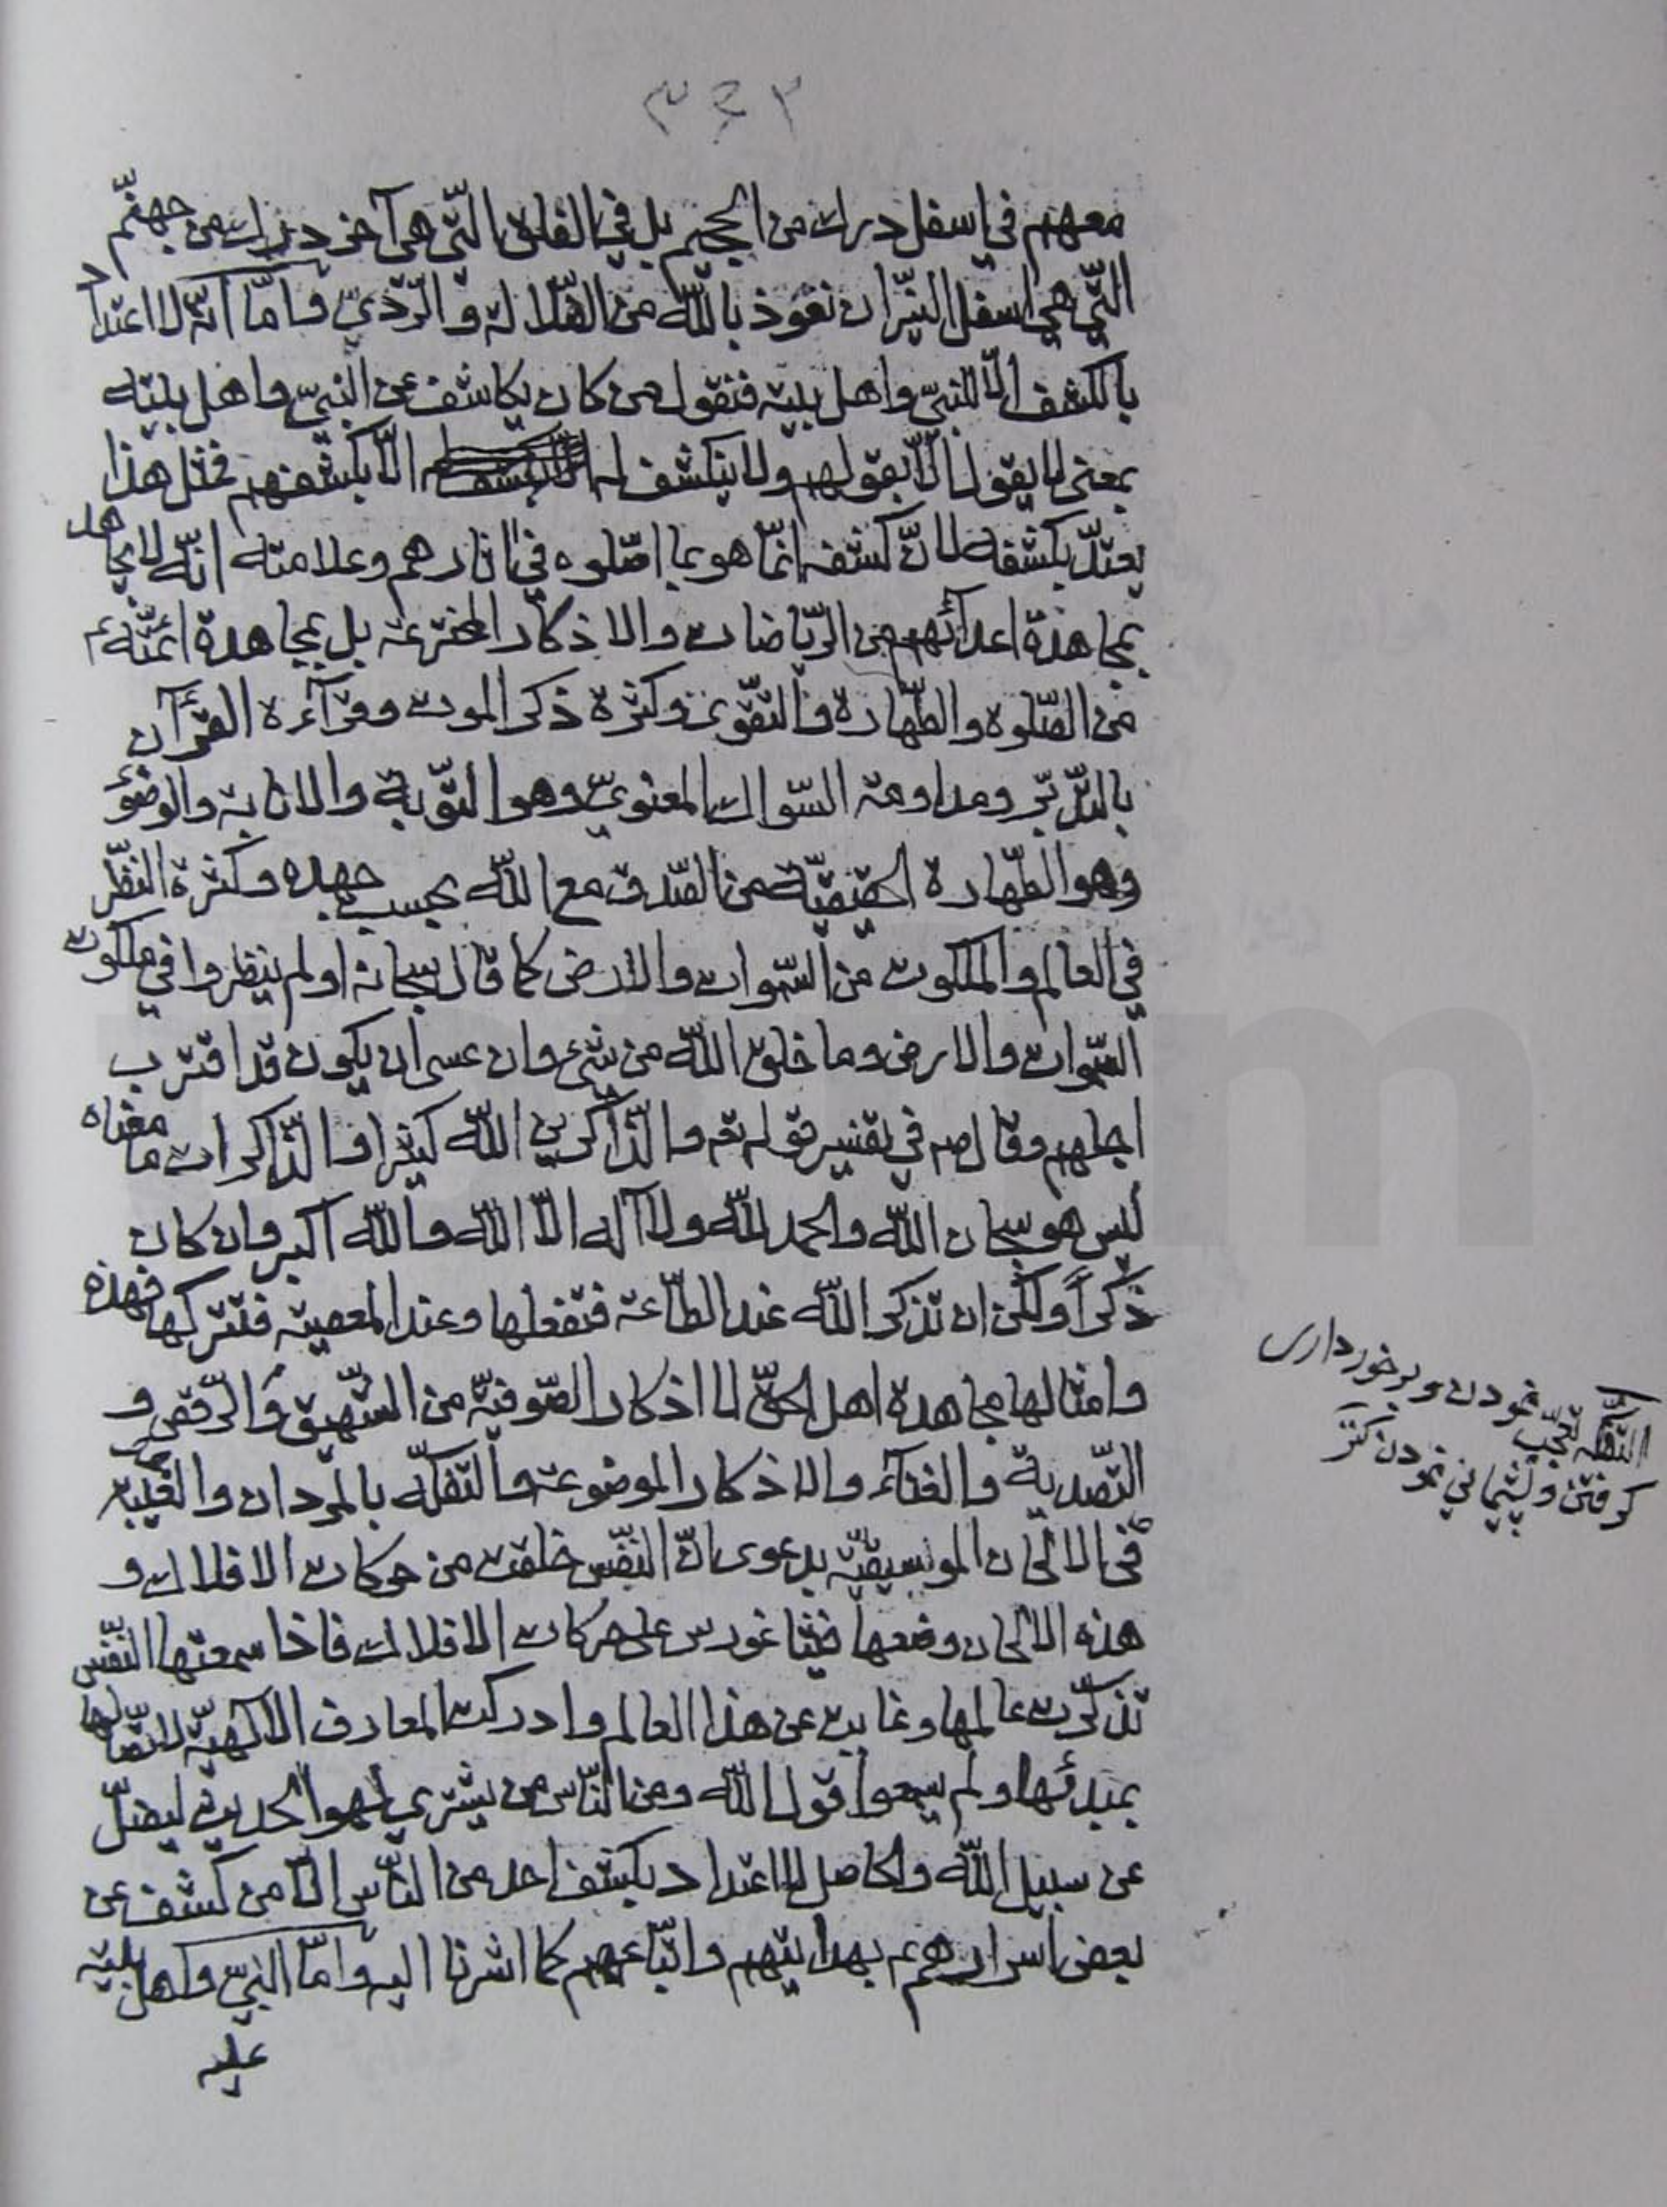 ٣٤٢
معهم في اسفل درك من الجحيم بل في الفلق التّي هي آخر درك من جهنّم
التّي هي اسفل النيّران نعوذ باللّه من الضّلالة والرّديّ وامّا انّه لا اعتداد
بالكشف الّا للنبيّ واهل بيته فنقول من كان يكاشف عن النبيّ واهل بيته
بمعنى لا يقول الّا بقولهم ولا ينكشف له الّا بكشفهم فمثل هذا
يعتدّ بكشفه لانّ كشفه انّما هو بما اصّلوه في اثارهم وعلامته انّه لا يجاهد
بمجاهدة اعدآئهم من الرّياضات والاذكار المخترعة بل بمجاهدة ائمّتهء
من الصّلوة والطّهارة والتّقوى وكثرة ذكر الموت وقرآءة القرآن
بالتّدبّر ومداومة السّواك المعنويّ وهو التّوبة والانابة والوضوء
وهو الطّهارة الحقيقيّة من الصّدق مع اللّه بحسب جهده وكثرة النظّر
في العالم والملكوت من السّموات والارض كما قال سبحانه اولم ينظروا في ملكوت
السّموات والارض وما خلق اللّه من شيء وان عسى ان يكون قد اقترب
اجلهم وقال ص في تفسير قوله تع والذّاكرين اللّه كثيرا والذّاكرات ما معناه
ليس هو سبحان اللّه والحمد للّه ولا آله الّا اللّه واللّه اكبر وان كان
ذكراً ولكن ان تذكر اللّه عند الطّاعة فتفعلها وعند المعصية فتتركها فهذه
وامثالها مجاهدة اهل الحقّ لا اذكار الصّوفيّة من الشّهيق والرّقص و
التّصدية والغنآء والاذكار الموضوعة والتّفكّه بالمردان والتّغييّر
في الالحان الموسيقيّة بدعوى انّ النّفس خلقت من حركات الافلاك و
هذه الالحان وضعها فيثاغورس على حركات الافلاك فاذا سمعتها النّفس
تذكّرت عالمها وغابت عن هذا العالم وادركت المعارف الآلهيّة لاتّصالها
بمبدئها ولم يسمعوا قول اللّه ومن النّاس من يشتري لهو الحديث ليضلّ
عن سبيل اللّه والحاصل لا اعتداد بكشف احد من النّاس الّا من كشف عن
بعض اسرارهم ع بهدايتهم واتّباعهم كما اشرنا اليه وامّا النبيّ واهل بيته
عليه
التفكّه تعجّب نمودن و برخورداري
كرفتن و پشيماني نمودن كنز